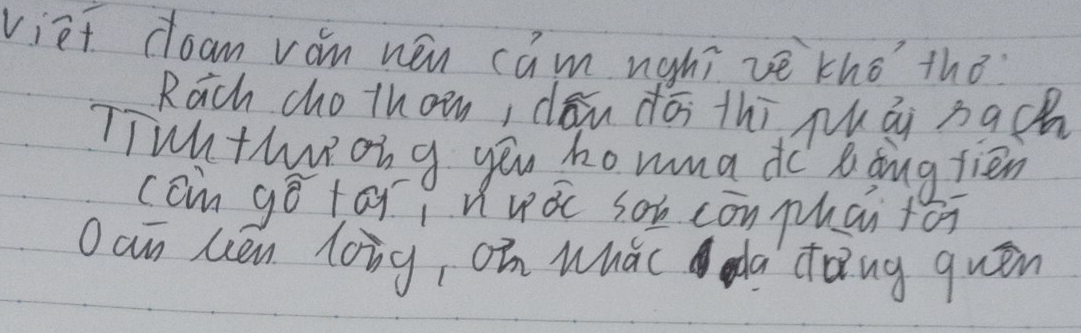 Viết đoan văn nên cảm nghĩ về khổ thơ:
Rách cho thơm, dẫu đói thì phải sạch
Tình thương yêu ko mua dc bằng tiền
Cần gỗ tốt, nước sơn còn phải tốt
Oán liên lòng, ơn nhắc dạ đừng quên